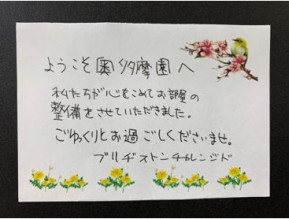 ようこそ奥多摩園へ
私たちが心をこめてお部屋の
整備をさせていただきました。
ごゆっくりとお過ごしくださいませ。
ブリヂストンチャレンジド